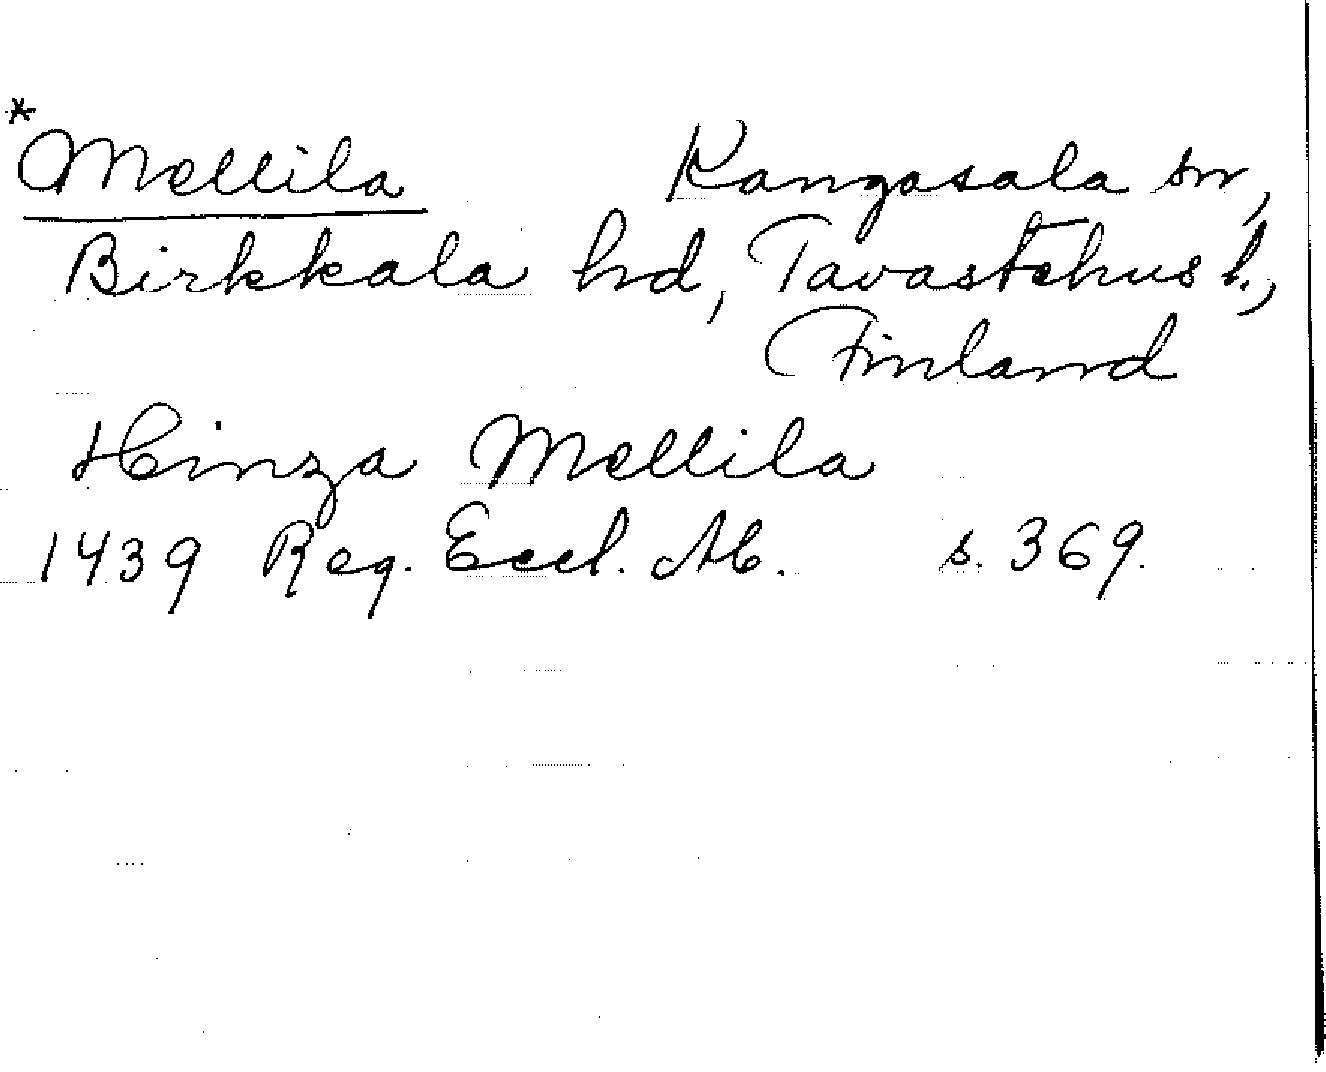 *
Mellila Kangasala sn,
Birkkala hd, Tavastehus l.,
Finland
Hinza Mellila
1439 Reg. Eccl. Ab. s. 369.